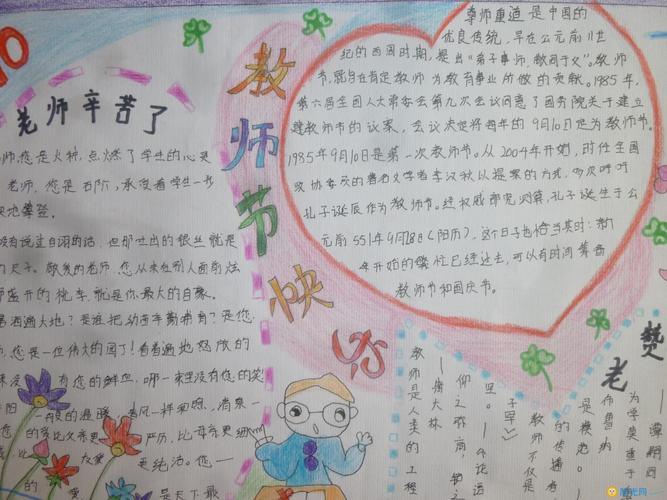 10
教师节快乐
老师辛苦了
师,您是火种,点燃了学生的心灵
老师,您是石阶,承受着学生一步
实地攀登。
没有说过自诩的话,但那
尺子。敬爱的老师,您从未在别人面前炫
盛开的桃李,就是你最大的自豪。
洒遍大地?是谁把幼苗辛勤哺育?是您,
师,您是一位伟大的园丁!看着遍地怒放的
有您的鲜血,哪一
阳
一般的温暖,春风一样和煦,清泉一
您的爱比父亲更严厉,比母亲更细
爱更纯洁。您一
是天下最
尊师重道是中国的
优良传统,早在公元前11世
纪的西周时期,提出“弟子事师,敬同于父”,教师
节,就旨在肯定教师为教育事业所做的贡献。1985年,
第六届全国人大常委会第九次会议同意了国务院关于建立
建教师节的议案,会议决定将每年的9月10日定为教师节。
1985年9月10日是第一次教师节。从2004年开始,时任全国
政协委员的著名文学者李汉秋以提案的方式,多次呼吁
孔子诞辰作为教师节。经权威部

测算,孔子诞生于公
元前551年9月28日(阳历),这个日子也恰当其时:新
年开始的繁忙已经过去,可以有时间筹备
教师节和国庆节。
赞老
为学莫重于
师曹内
是模范。
的传播者
教师不仅是
子罕》
里。
仰之弥高,钻之
—康大林
教师是人类的工程